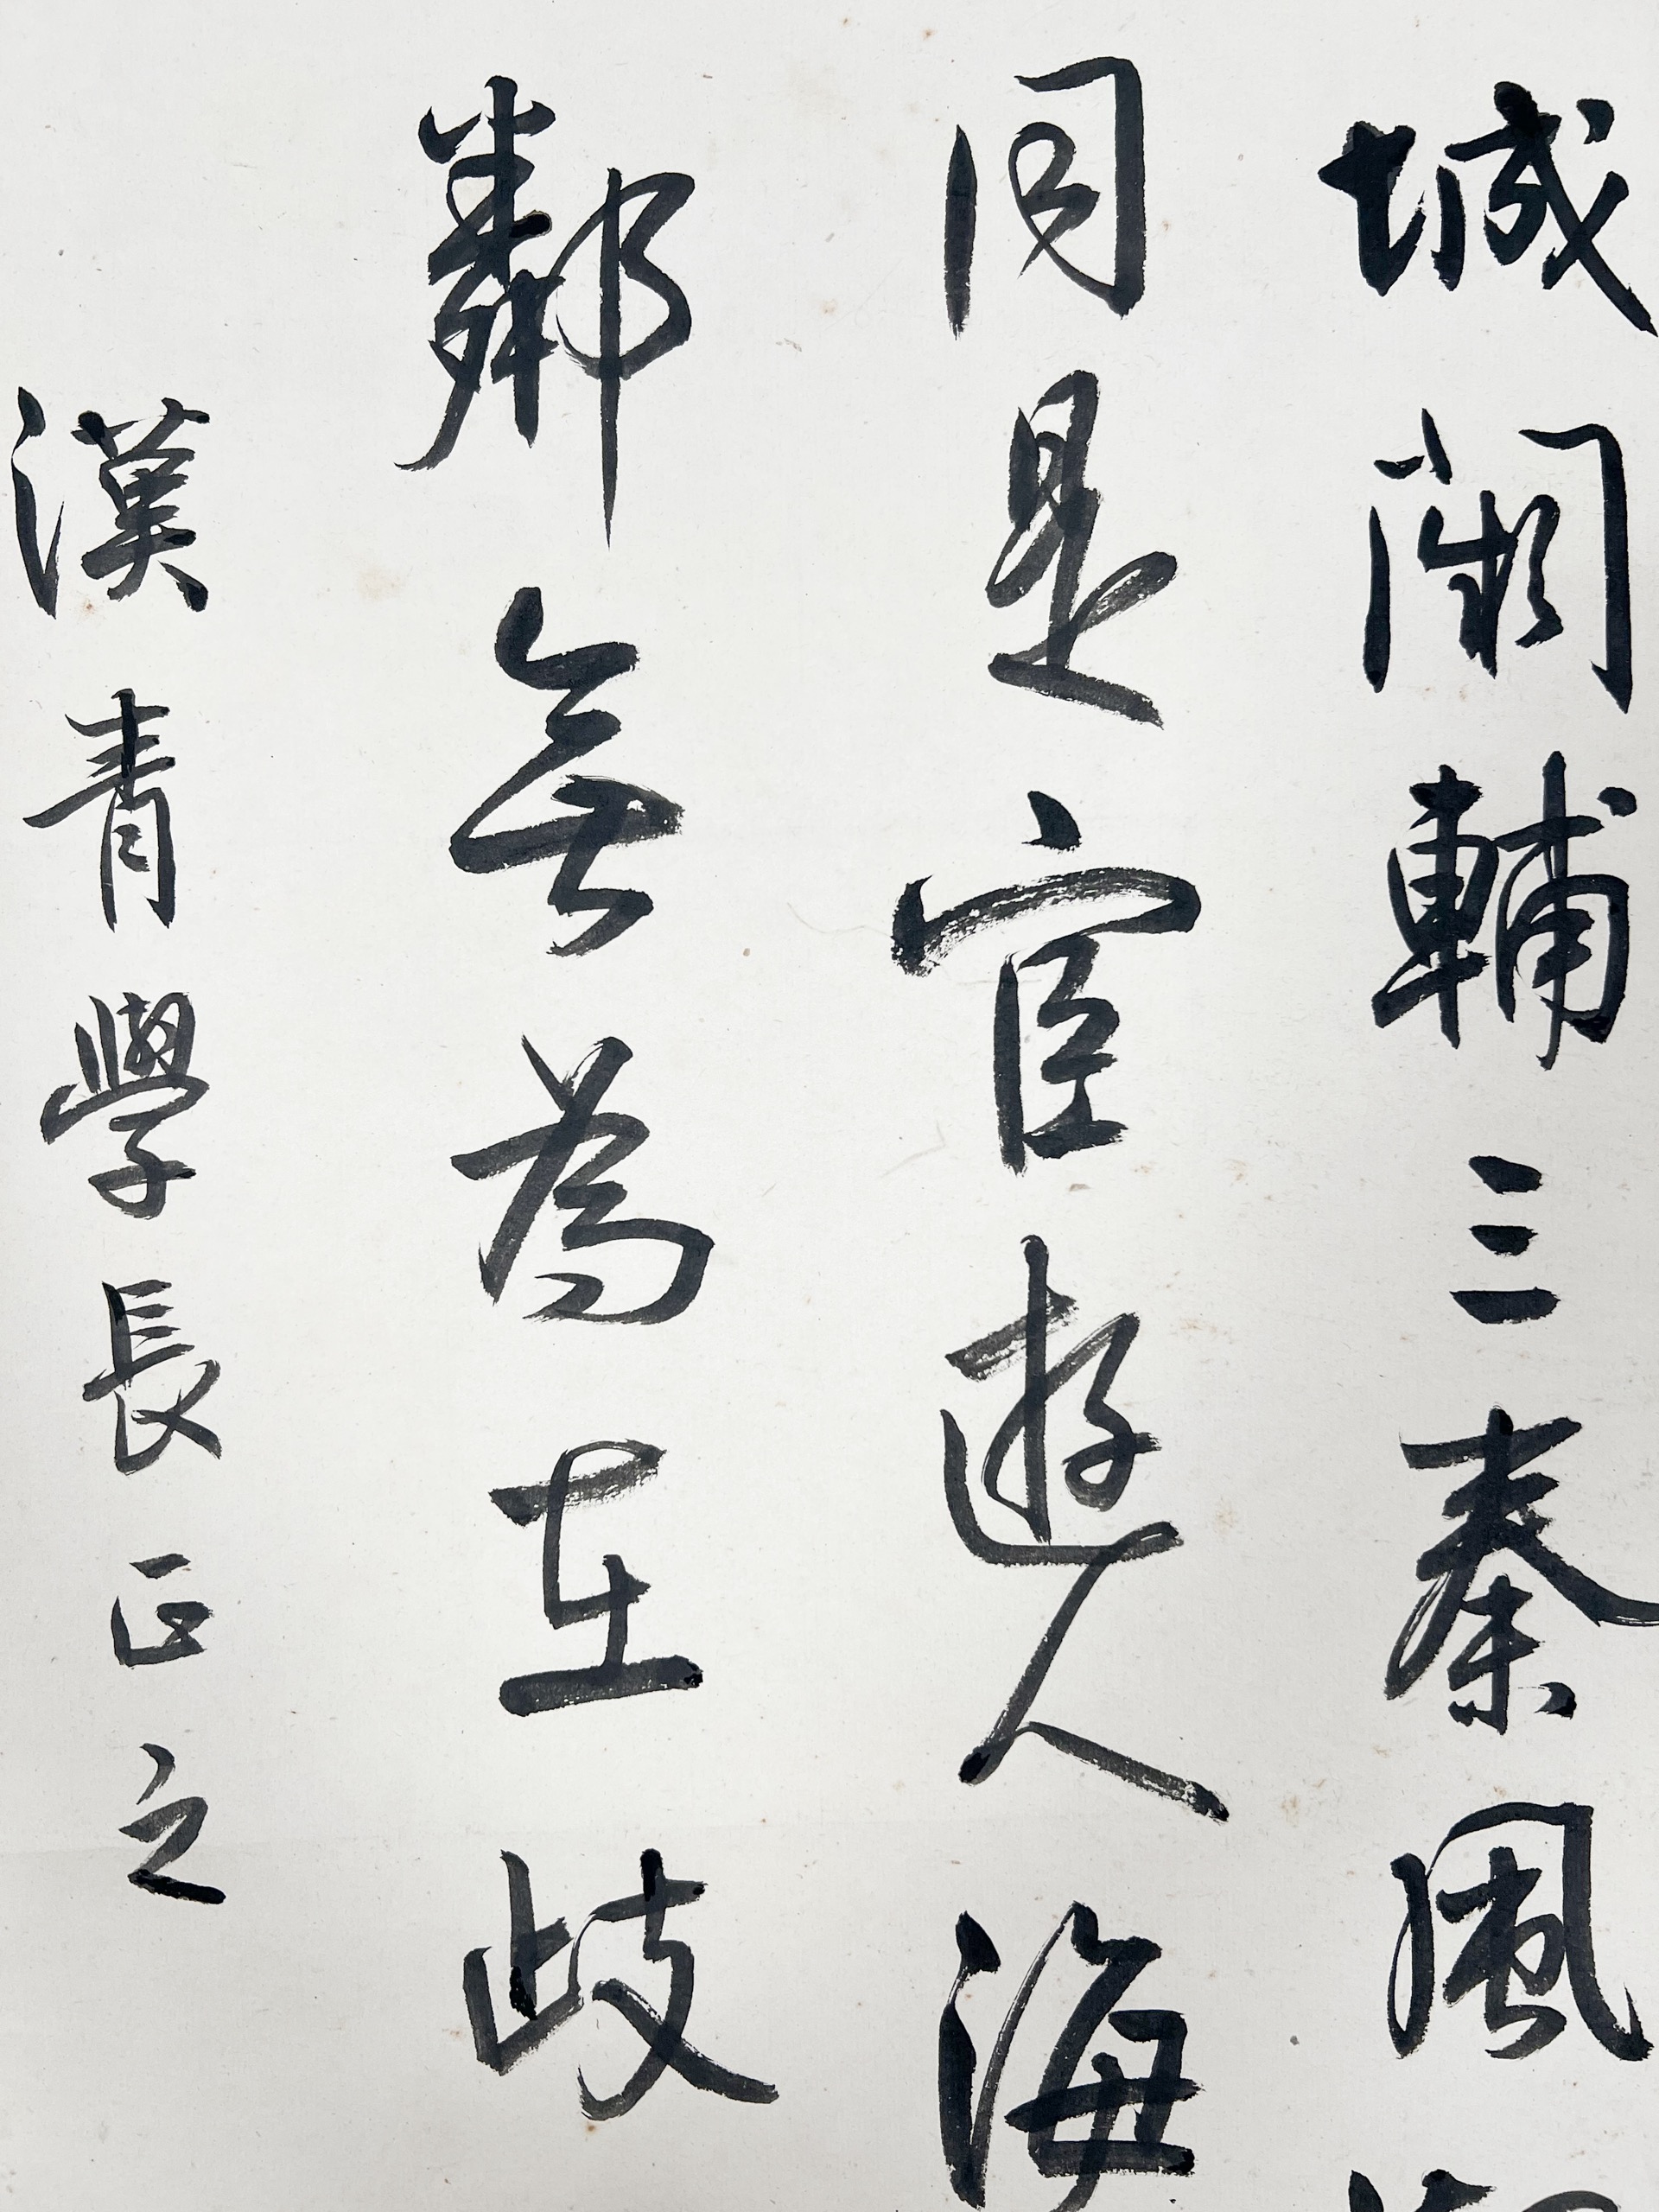 城闕輔三秦風
同是宦遊人海
鄰無為在歧
漢青學長正之